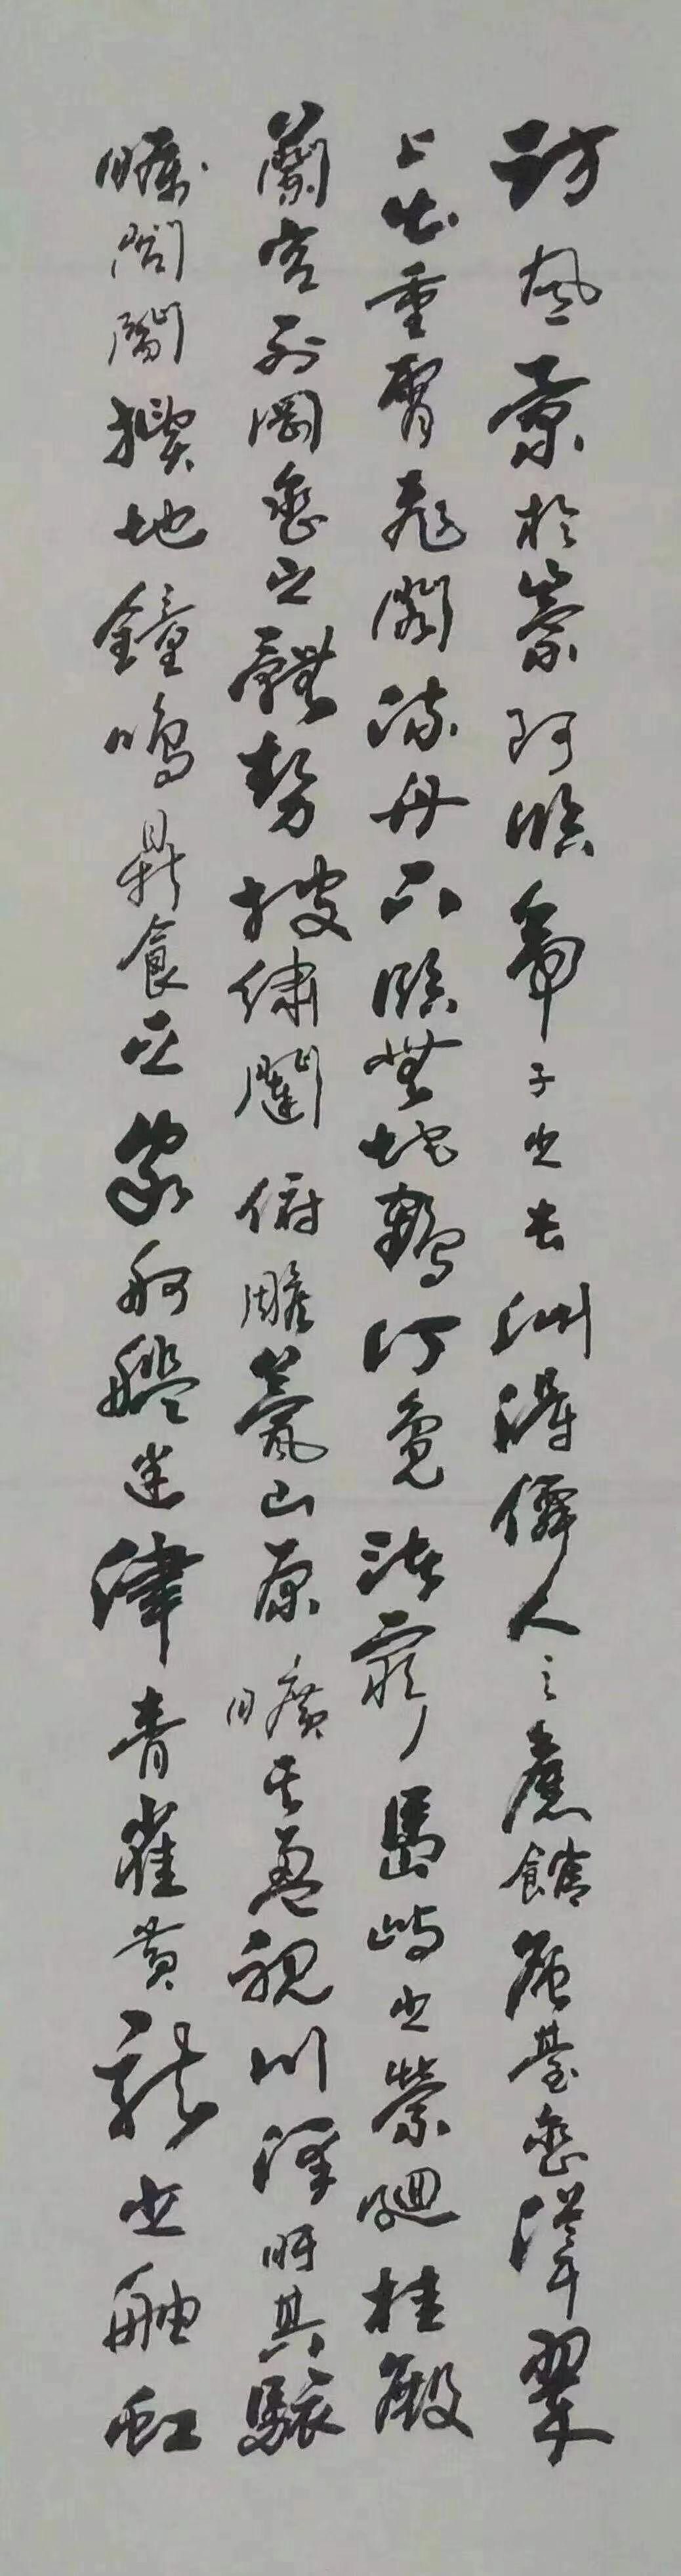 訪風景於崇阿臨帝子之長洲得僊人之舊館層臺巒聳翠
上出重霄飛閣流丹下臨無地鶴汀鳧渚窮島嶼之縈迴桂殿
蘭宮列岡巒之體勢披繡闥俯雕甍山原曠其盈視川澤盱其駭
矚閭閻撲地鐘鳴鼎食之家舸艦迷津青雀黃龍之舳虹